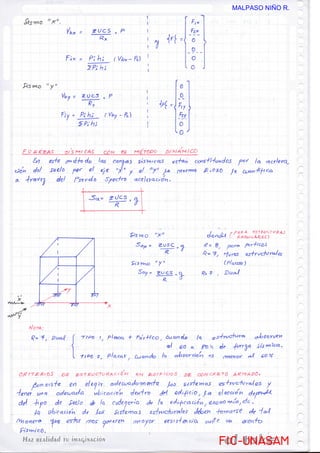 MALPASO NIÑO R.
Sismo "X".
Vox = ZUCS . P
Rx
Fix = Pi hi (Vox - Fa)
ΣPi hi
y {F} =
F1x
F2x
0
0
0
0
Sismo "Y"
Voy = ZUCS . P
Ry
Fiy = Pi hi (Voy - Fa)
ΣPi hi
{F} =
0
0
F1y
F2y
0
0
FUERZAS SISMICAS CON EL METODO DINAMICO
En este método las cargas sismicas están constituidas por la acelera,
ción del suelo por el eje "x" y el "y" la norma E.030 la cuantifica
a través del Pseudo Spectro aceleración.
Sa = ZUCS . g
R
Sismo "X"
Sax = ZUSC . g
R
Sismo "Y"
Say = ZUCS . g
R
donde (PARA ESTRUCTURAS REGULARES)
R = 8, para porticos
R = 7, Muros estructurales
(Placas)
R = 7, Dual
Nota:
R = 7, Dual
TIPO 1, Placas + Pórtico, cuando la estructura absorven
el 60 a 80% de fuerza sísmica.
TIPO 2, Placas, cuando la absorción es menor al 60%
CRITERIOS DE ESTRUCTURACIÓN EN EDIFICIOS DE CONCRETO ARMADO.
Consiste en elegir adecuadamente los sistemas estructurales y
tener una adecuada ubicación dentro del edificio, la elección depende
del tipo de suelo de la categoria de la edificación, economia, etc.
la ubicación de los sistemas estructurales deben tomarse de tal
manera que estos nos generen mayor resistencia ante un evento
sismico.
Haz realidad tu imaginación
FIC-UNASAM